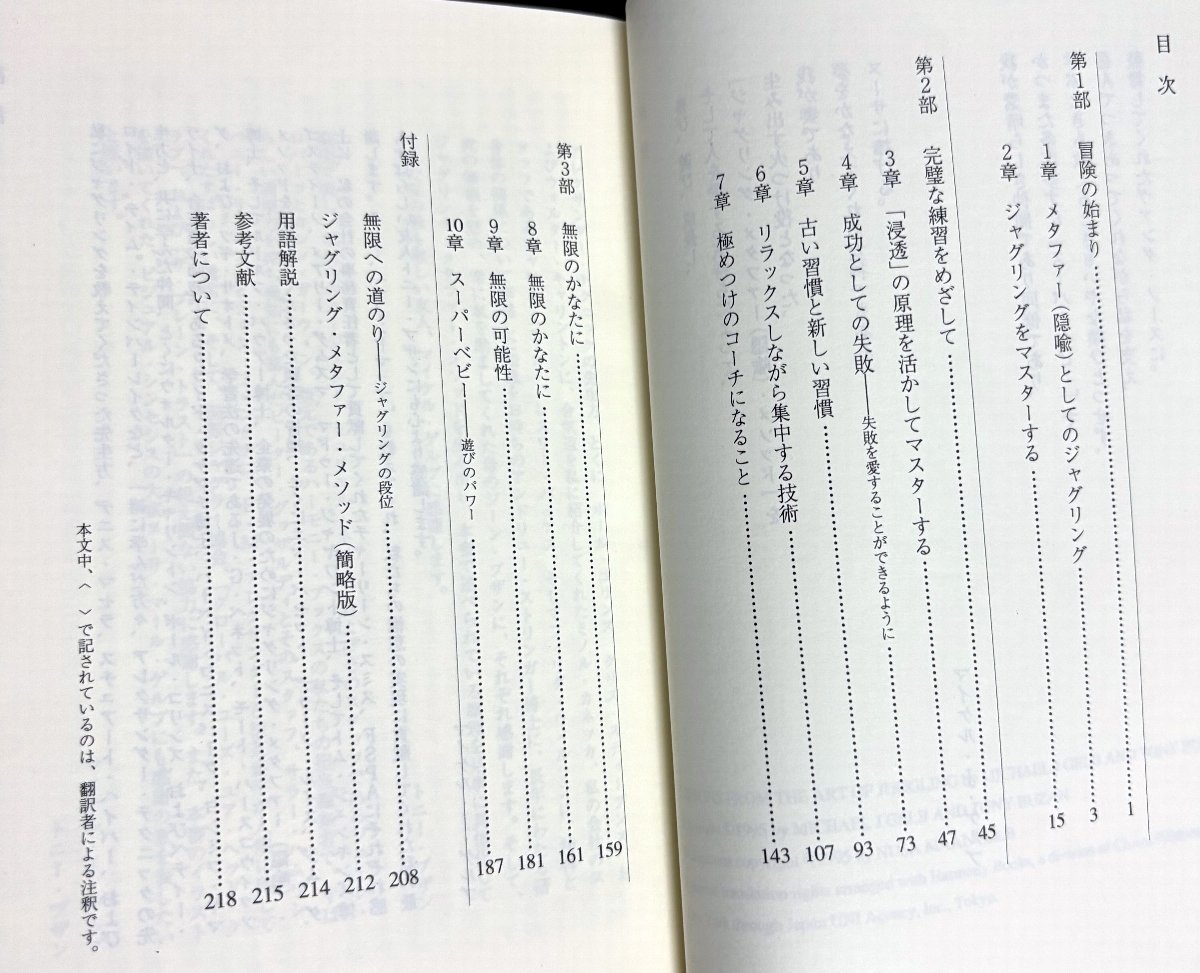 目次
第1部 冒険の始まり……1
1章 メタファー〈隠喩〉としてのジャグリング……3
2章 ジャグリングをマスターする……15
第2部 完璧な練習をめざして……45
3章 「浸透」の原理を活かしてマスターする……47
4章 成功としての失敗──失敗を愛することができるように……73
5章 古い習慣と新しい習慣……93
6章 リラックスしながら集中する技術……107
7章 極めつけのコーチになること……143
第3部 無限のかなたに……159
8章 無限のかなたに……161
9章 無限の可能性……181
10章 スーパーベビー──遊びのパワー……187
付録
無限への道のり──ジャグリングの段位……208
ジャグリング・メタファー・メソッド(簡略版)……212
用語解説……214
参考文献……215
著者について……218
本文中、〈 〉で記されているのは、翻訳者による注釈です。